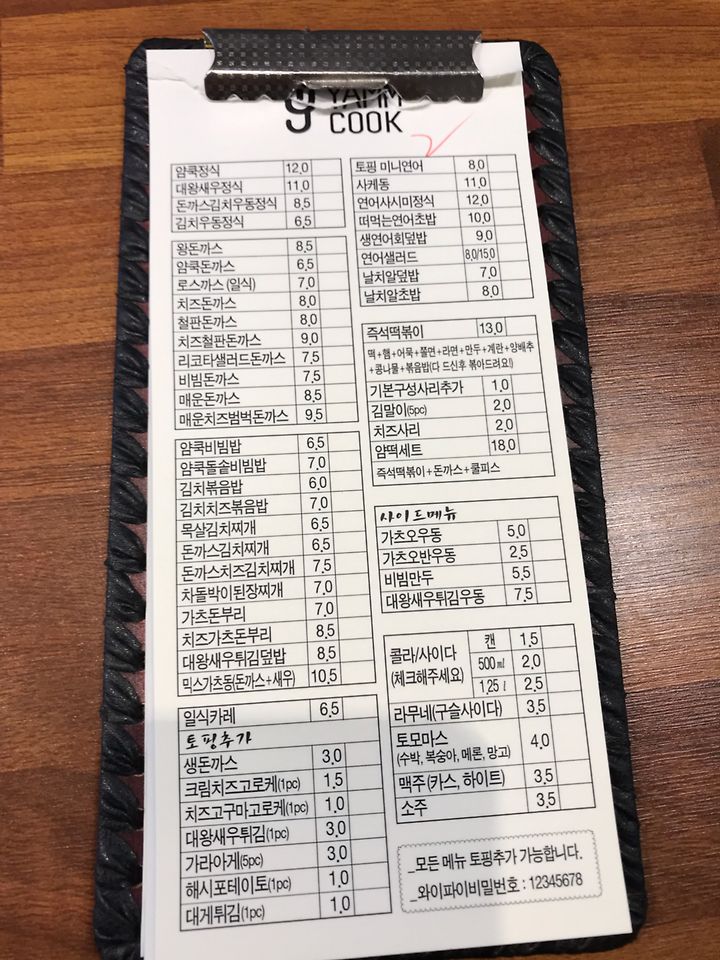 YAMM
COOK
얌쿡정식 12.0
대왕새우정식 11.0
돈까스김치우동정식 8.5
김치우동정식 6.5
왕돈까스 8.5
얌쿡돈까스 6.5
로스까스 (일식) 7.0
치즈돈까스 8.0
철판돈까스 8.0
치즈철판돈까스 9.0
리코타샐러드돈까스 7.5
비빔돈까스 7.5
매운돈까스 8.5
매운치즈범벅돈까스 9.5
얌쿡비빔밥 6.5
얌쿡돌솥비빔밥 7.0
김치볶음밥 6.0
김치치즈볶음밥 7.0
목살김치찌개 6.5
돈까스김치찌개 6.5
돈까스치즈김치찌개 7.5
차돌박이된장찌개 7.0
가츠돈부리 7.0
치즈가츠돈부리 8.5
대왕새우튀김덮밥 8.5
믹스가츠동(돈까스+새우) 10.5
일식카레 6.5
토핑추가
생돈까스 3.0
크림치즈고로케(1pc) 1.5
치즈고구마고로케(1pc) 1.0
대왕새우튀김(1pc) 3.0
가라아게(5pc) 3.0
해시포테이토(1pc) 1.0
대게튀김(1pc) 1.0
토핑 미니연어 8.0
사케동 11.0
연어사시미정식 12.0
떠먹는연어초밥 10.0
생연어회덮밥 9.0
연어샐러드 8.0/15.0
날치알덮밥 7.0
날치알초밥 8.0
즉석떡볶이 13.0
떡+햄+어묵+쫄면+라면+만두+계란+양배추
+콩나물+볶음밥(다 드신후 볶아드려요!)
기본구성사리추가 1.0
김말이(5pc) 2.0
치즈사리 2.0
얌떡세트 18.0
즉석떡볶이+돈까스+쿨피스
사이드메뉴
가츠오우동 5.0
가츠오반우동 2.5
비빔만두 5.5
대왕새우튀김우동 7.5
콜라/사이다 캔 1.5
(체크해주세요) 500㎖ 2.0
1.25ℓ 2.5
라무네(구슬사이다) 3.5
토모마스 4.0
(수박, 복숭아, 메론, 망고)
맥주 (카스, 하이트) 3.5
소주 3.5
_모든 메뉴 토핑추가 가능합니다.
_와이파이비밀번호 : 12345678